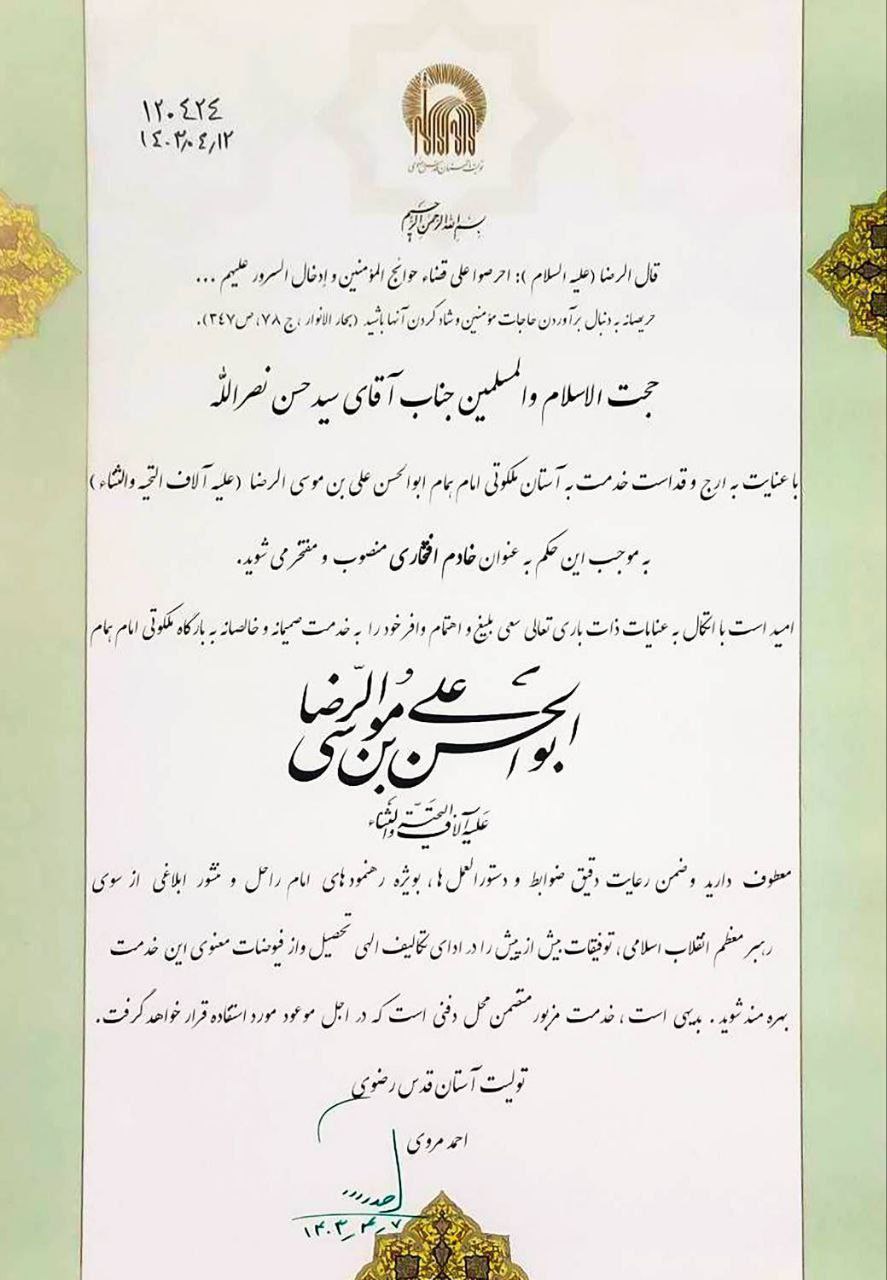 ۱۲۰۴۲۴
۱۴۰۳/۰۴/۱۲
تولیت آستان قدس رضوی
بسم الله الرحمن الرحیم
قال الرضا (علیه السلام): احرصوا علی قضاء حوائج المؤمنین و إدخال السرور علیهم ...
حریصانه به دنبال برآوردن حاجات مؤمنین و شاد کردن آنها باشید (بحار الانوار، ج ۷۸، ص ۳۴۷).
حجت الاسلام والمسلمین جناب آقای سید حسن نصرالله
با عنایت به ارج و قداست خدمت به آستان ملکوتی امام همام ابوالحسن علی بن موسی الرضا (علیه آلاف التحیه والثناء)
به موجب این حکم به عنوان خادم افتخاری منصوب و مفتخر می شوید.
امید است با اتکال به عنایات ذات باری تعالی سعی بلیغ و اهتمام وافر خود را به خدمت صمیمانه و خالصانه به بارگاه ملکوتی امام همام
ابوالحسن علی بن موسی الرضا
علیه آلاف التحیة والثناء
معطوف دارید وضمن رعایت دقیق ضوابط و دستورالعمل ها، بویژه رهنمودهای امام راحل و منشور ابلاغی از سوی
رهبر معظم انقلاب اسلامی، توفیقات بیش از پیش را در ادای تکالیف الهی تحصیل واز فیوضات معنوی این خدمت
بهره مند شوید. بدیهی است، خدمت مزبور متضمن محل دفنی است که در اجل موعود مورد استفاده قرار خواهد گرفت.
تولیت آستان قدس رضوی
احمد مروی
۱۴۰۳/۴/۷